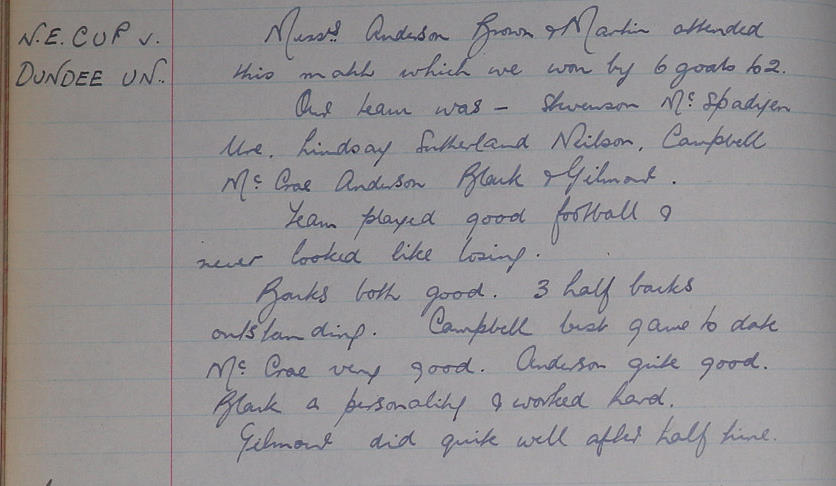 N.E. CUP v.
DUNDEE UN.
Messrs Anderson Brown & Martin attended
this match which we won by 6 goals to 2.
Our team was – Stevenson Mc Spadyen
Ure, Lindsay Sutherland Neilson, Campbell
Mc Crae Anderson Black & Gilmour.
Team played good football &
never looked like losing.
Backs both good. 3 half backs
outstanding. Campbell best game to date
Mc Crae very good. Anderson quite good.
Black a personality & worked hard.
Gilmour did quite well after half time.